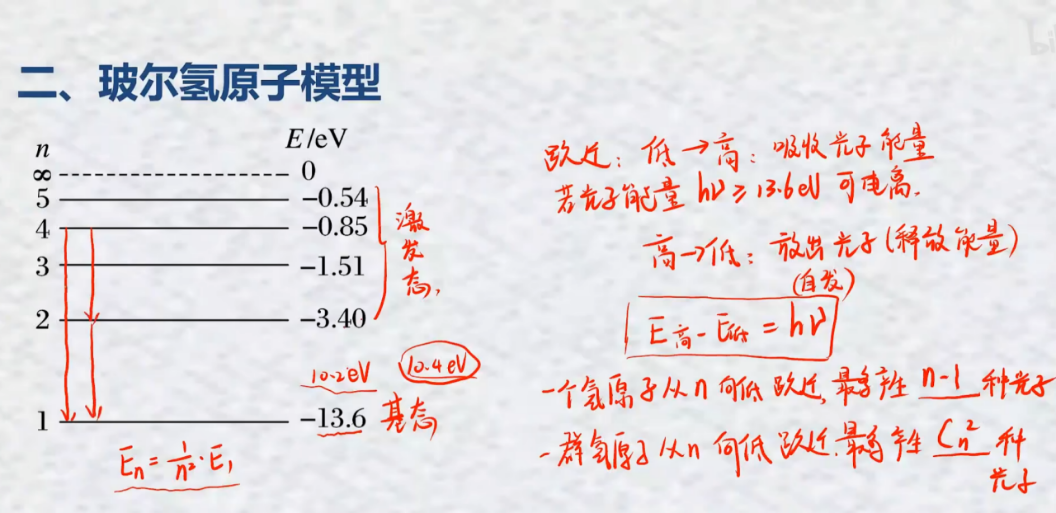 二、玻尔氢原子模型
n
E/eV
∞ 0
5 -0.54
4 -0.85
3 -1.51
2 -3.40
1 -13.6
激发态,
10.2eV 10.4eV
基态
En = 1/n²·E₁
跃迁: 低→高: 吸收光子能量
若光子能量 hν ≥ 13.6eV 可电离.
高→低: 放出光子(释放能量)
(自发)
E高 - E低 = hν
一个氢原子从n向低跃迁,最多产生 n-1 种光子
一群氢原子从n向低跃迁.最多产生 Cn² 种
光子